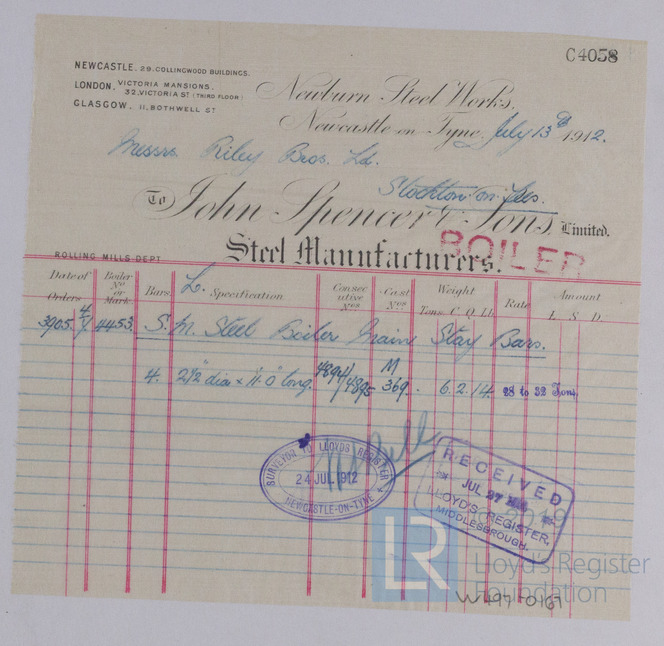 C4058
NEWCASTLE. 29. COLLINGWOOD BUILDINGS.
LONDON. VICTORIA MANSIONS,
32, VICTORIA ST (THIRD FLOOR)
GLASGOW. 11, BOTHWELL ST
Newburn Steel Works.
Newcastle on Tyne, July 13th 1912.
Messrs Riley Bros. Ld.
Stockton on Tees.
To John Spencer & Sons, Limited.
Steel Manufacturers.
BOILER
ROLLING MILLS DEPT
Date of Orders Boiler No or Mark. Bars. L. Specification Consecutive Nos Cast Nos Weight Tons C Q Lb Rate Amount £ S D
3905 4/7 4453. S. M. Steel Boiler Main Stay Bars.
4. 2 1/2" dia x 11' 0" long. 4894/4895 M 369. 6. 2. 14. 28 to 32 Tons
SURVEYOR TO LLOYDS REGISTER
24 JUL 1912
NEWCASTLE-ON-TYNE
RECEIVED
JUL 27
LLOYD'S REGISTER,
MIDDLESBROUGH.
© 2019
LR
Lloyd's Register
Foundation
W497-0167